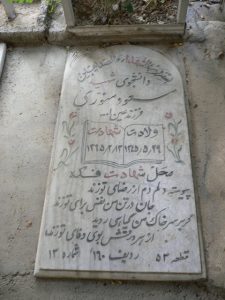 دانشجوی شهید
مسعود منوری
فرزند حسین
ولادت شهادت
۱۳۴۵/۵/۲۹ ۱۳۶۵/۲/۱۳
محل شهادت فکه
پیوسته دلم دم از رضای تو زند
جان در تن من نفس برای تو زند
گر بر سر خاک من گیاهی روید
از هر ورقش بوی وفای تو زند
قطعه ۵۳ ردیف ۱۶۰ شماره ۱۳